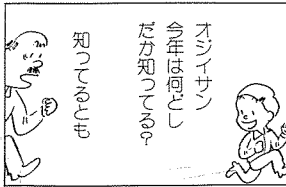 オジイサン
今年は何どし
だか知ってる？
知ってるとも